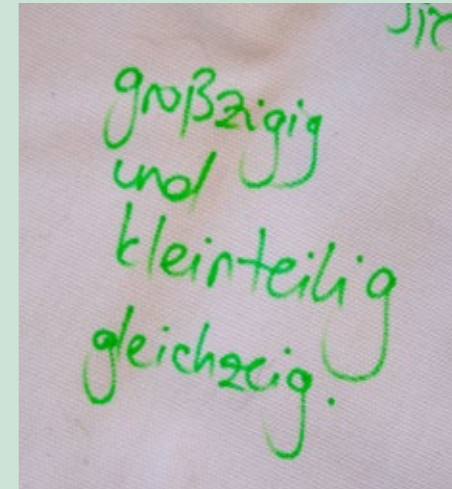 großzigig
und
kleinteilig
gleichzeig.